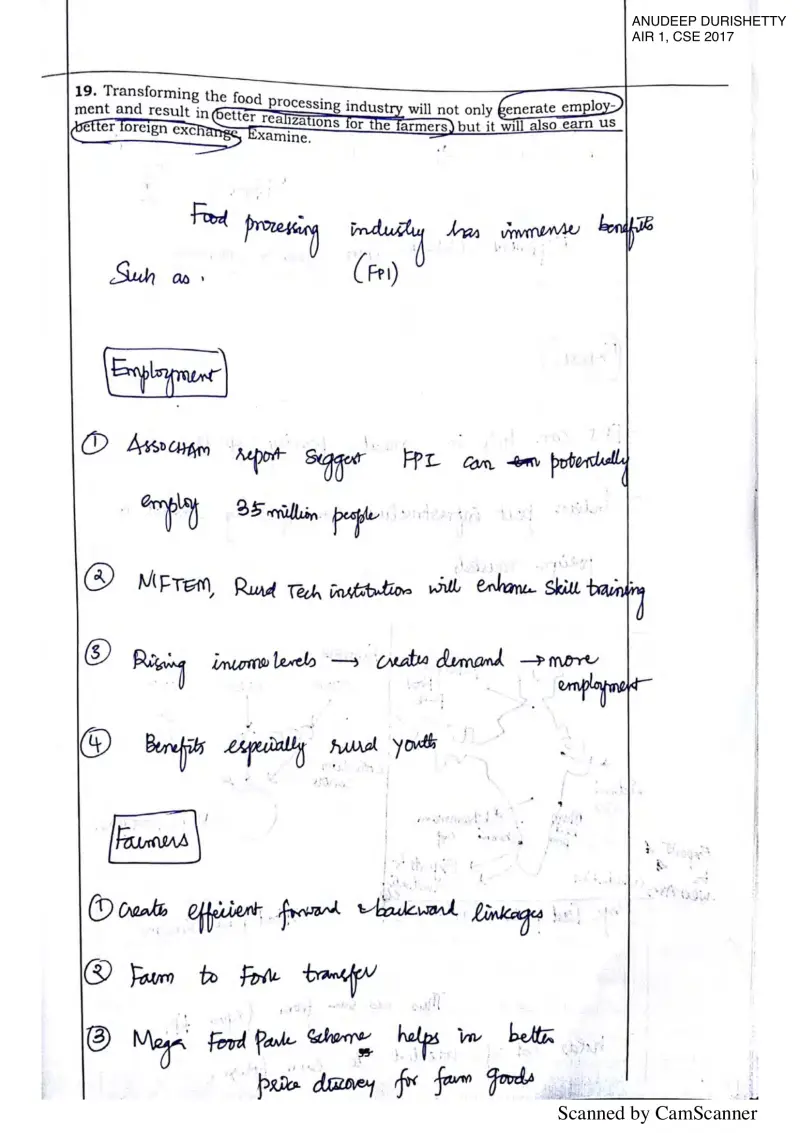 ANUDEEP DURISHETTY
AIR 1, CSE 2017
19. Transforming the food processing industry will not only generate employ-
ment and result in better realizations for the farmers, but it will also earn us
better foreign exchange. Examine.
Food processing industry has immense benefits
(FPI)
Such as.
Employment
① ASSOCHAM report suggest FPI can potentially
employ 35 million people
② NIFTEM, Rural Tech institution will enhance skill training
③ Rising income levels → creates demand → more
employment
④ Benefits especially rural youth
Farmers
① Creates efficient forward & backward linkages
② Farm to Fork transfer
③ Mega Food Park Scheme helps in better
price discovey for farm goods
Scanned by CamScanner